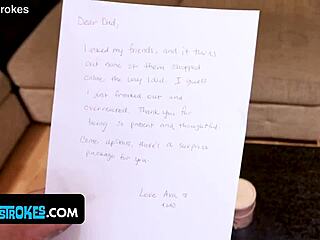 trokes
Dear Dad,
I asked my friends, and it turns
out none of them stopped
the way I did. I guess
I just freaked out and
overreacted. Thank you for
being so present and thoughtful.
Come upstairs, there's a surprise
package for you.
Love Ava
STROKES.COM